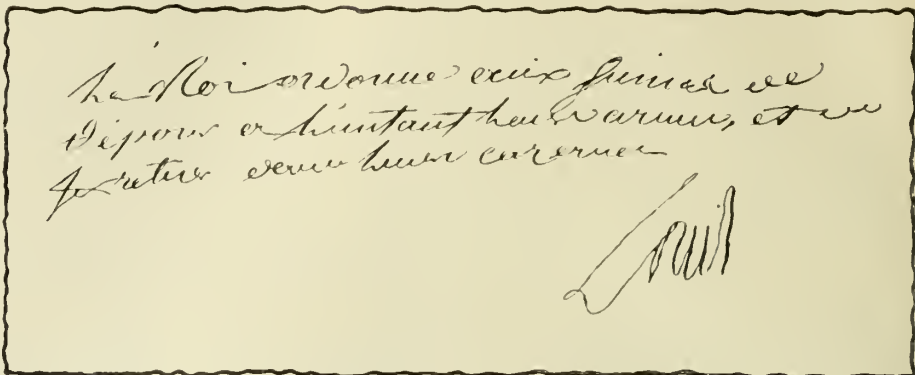 Le Roi ordonne aux Suisses de
déposer à l'instant leurs armes, et de
se retirer dans leurs casernes
Louis